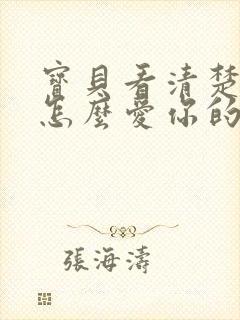 寶貝看清楚
怎麼愛你的
張海濤